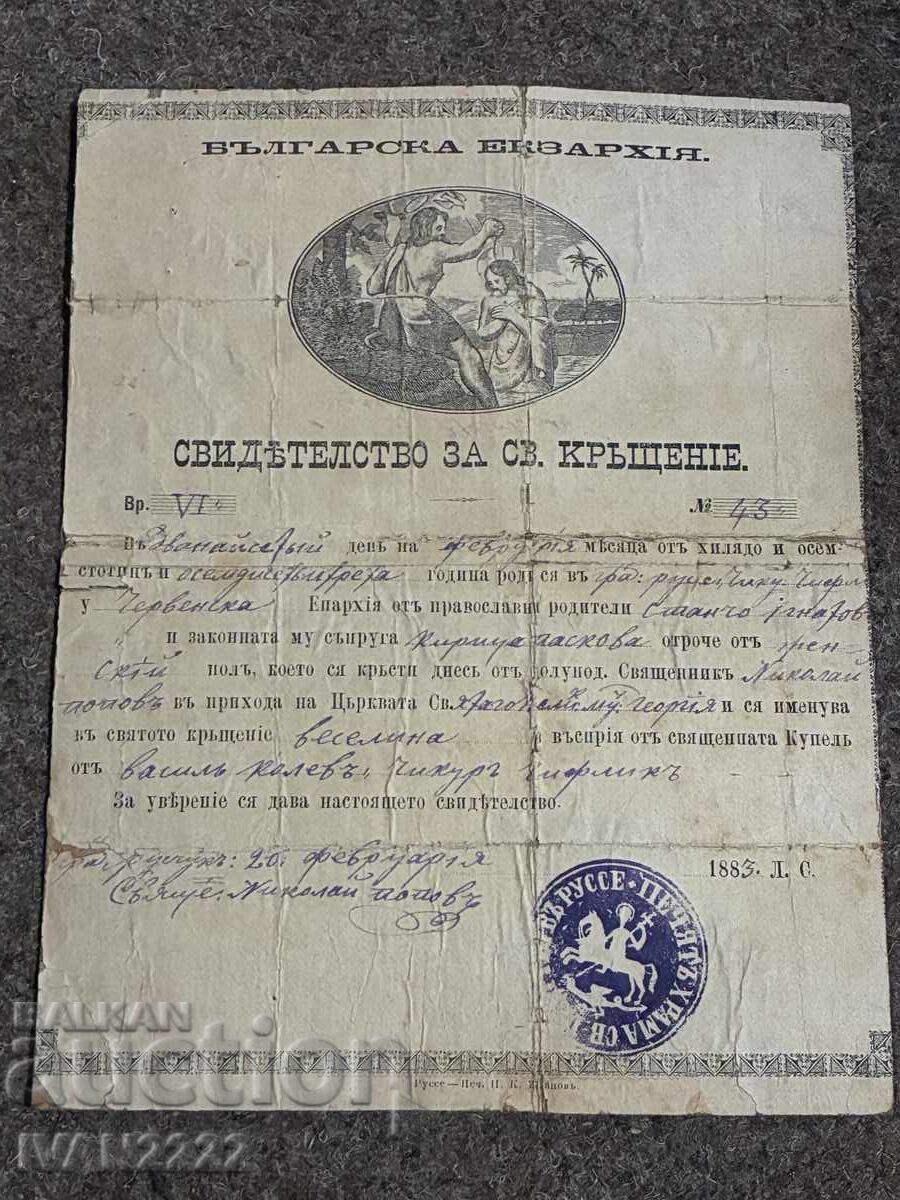 БЪЛГАРСКА ЕКЗАРХІЯ.
СВИДѢТЕЛСТВО ЗА СВ. КРЪЩЕНІЕ.
Вр. VI
№ 43
Въ день на февруарія мѣсяца отъ хилядо и осем-
стотинъ и година роди ся въ гра:
у Червенска Епархія отъ православни родители Станчо Игнатов
и законната му съпруга Кирица Паскова отроче отъ жен-
скій полъ, което ся крьсти днесь отъ долупод. Священникъ Николай
Поповъ въ прихода на Църквата Св. Георгія и ся именува
въ святото крьщеніе Веселина и въспрія отъ священната Купель
отъ Василь Колевъ, Чикуръ Чифликъ
За увѣреніе ся дава настоящето свидѣтелство.
гра: Русчукъ: 20 февруарія
1883. Л. С.
Свящ: Николай Поповъ
ВЪ РУССЕ • ПЕЧЯТЪ ХРАМА СВ
Руссе—Печ. П. К.
BALKAN
auction
IVAN2222